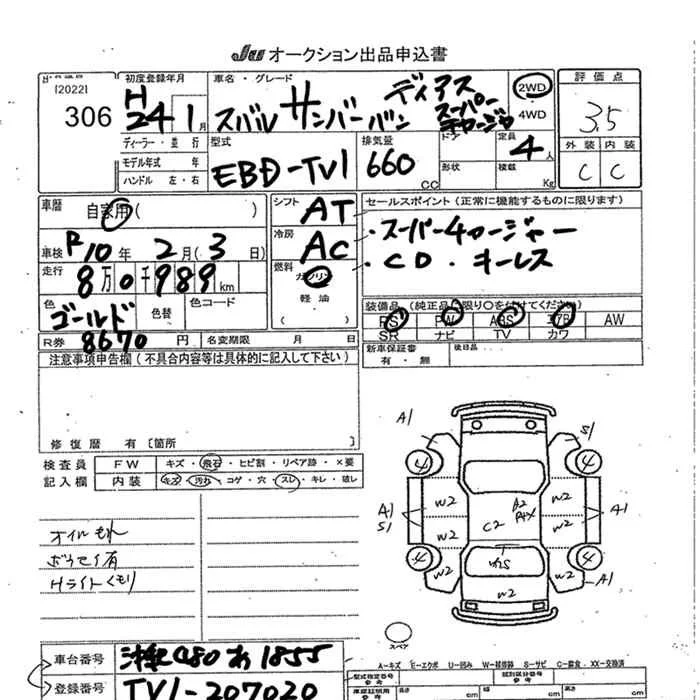 JU オークション出品申込書
[2022]
306
初度登録年月
H 24 1 月
ディーラー・並行
モデル年式 年
ハンドル 左・右
車名・グレード
スバル サンバーバン ディアス
スーパーチャージャ
2WD
4WD
型式
EBD-TV1
排気量
660
CC
ドア
形状
定員
4 人
積載
Kg
評価点
3.5
外装 内装
C C
車歴
自家用( )
車検 R10年 2月(3日)
走行
8万0千989km
色
ゴールド
色替
色コード
R券 8670 円
名変期限 月 日
シフト
AT
冷房
AC
燃料
ガソリン
軽油
( )
セールスポイント(正常に機能するものに限ります)
・スーパーチャージャー
・CD ・キーレス
装備品(純正品に限り○を付けてください)
PS PW ABS エアB AW
SR ナビ TV カワ
新車保証書
有・無
後日品
注意事項申告欄(不具合内容等は具体的に記入して下さい)
修復歴 有〔箇所 〕
検査員
記入欄
FW キズ・飛石・ヒビ割・リペア跡・×要
内装 キズ・汚れ・コゲ・穴・スレ・キレ・破レ
オイルもれ
ボウセイ有
Hライトくもり
A1
S1
4
4
W2
W2
A2
C2
A1
S1
A1
W2
W2
4
4
W2
W2
W2
A1
スペア
A=キズ E=エクボ U=凹み W=補修跡 S=サビ C=腐食 XX=交換済
車台番号
480 あ 1855
登録番号
TV1-207020
型式指定番号
参考
類別区分番号
参考
長さ
cm
幅
cm
高さ
cm